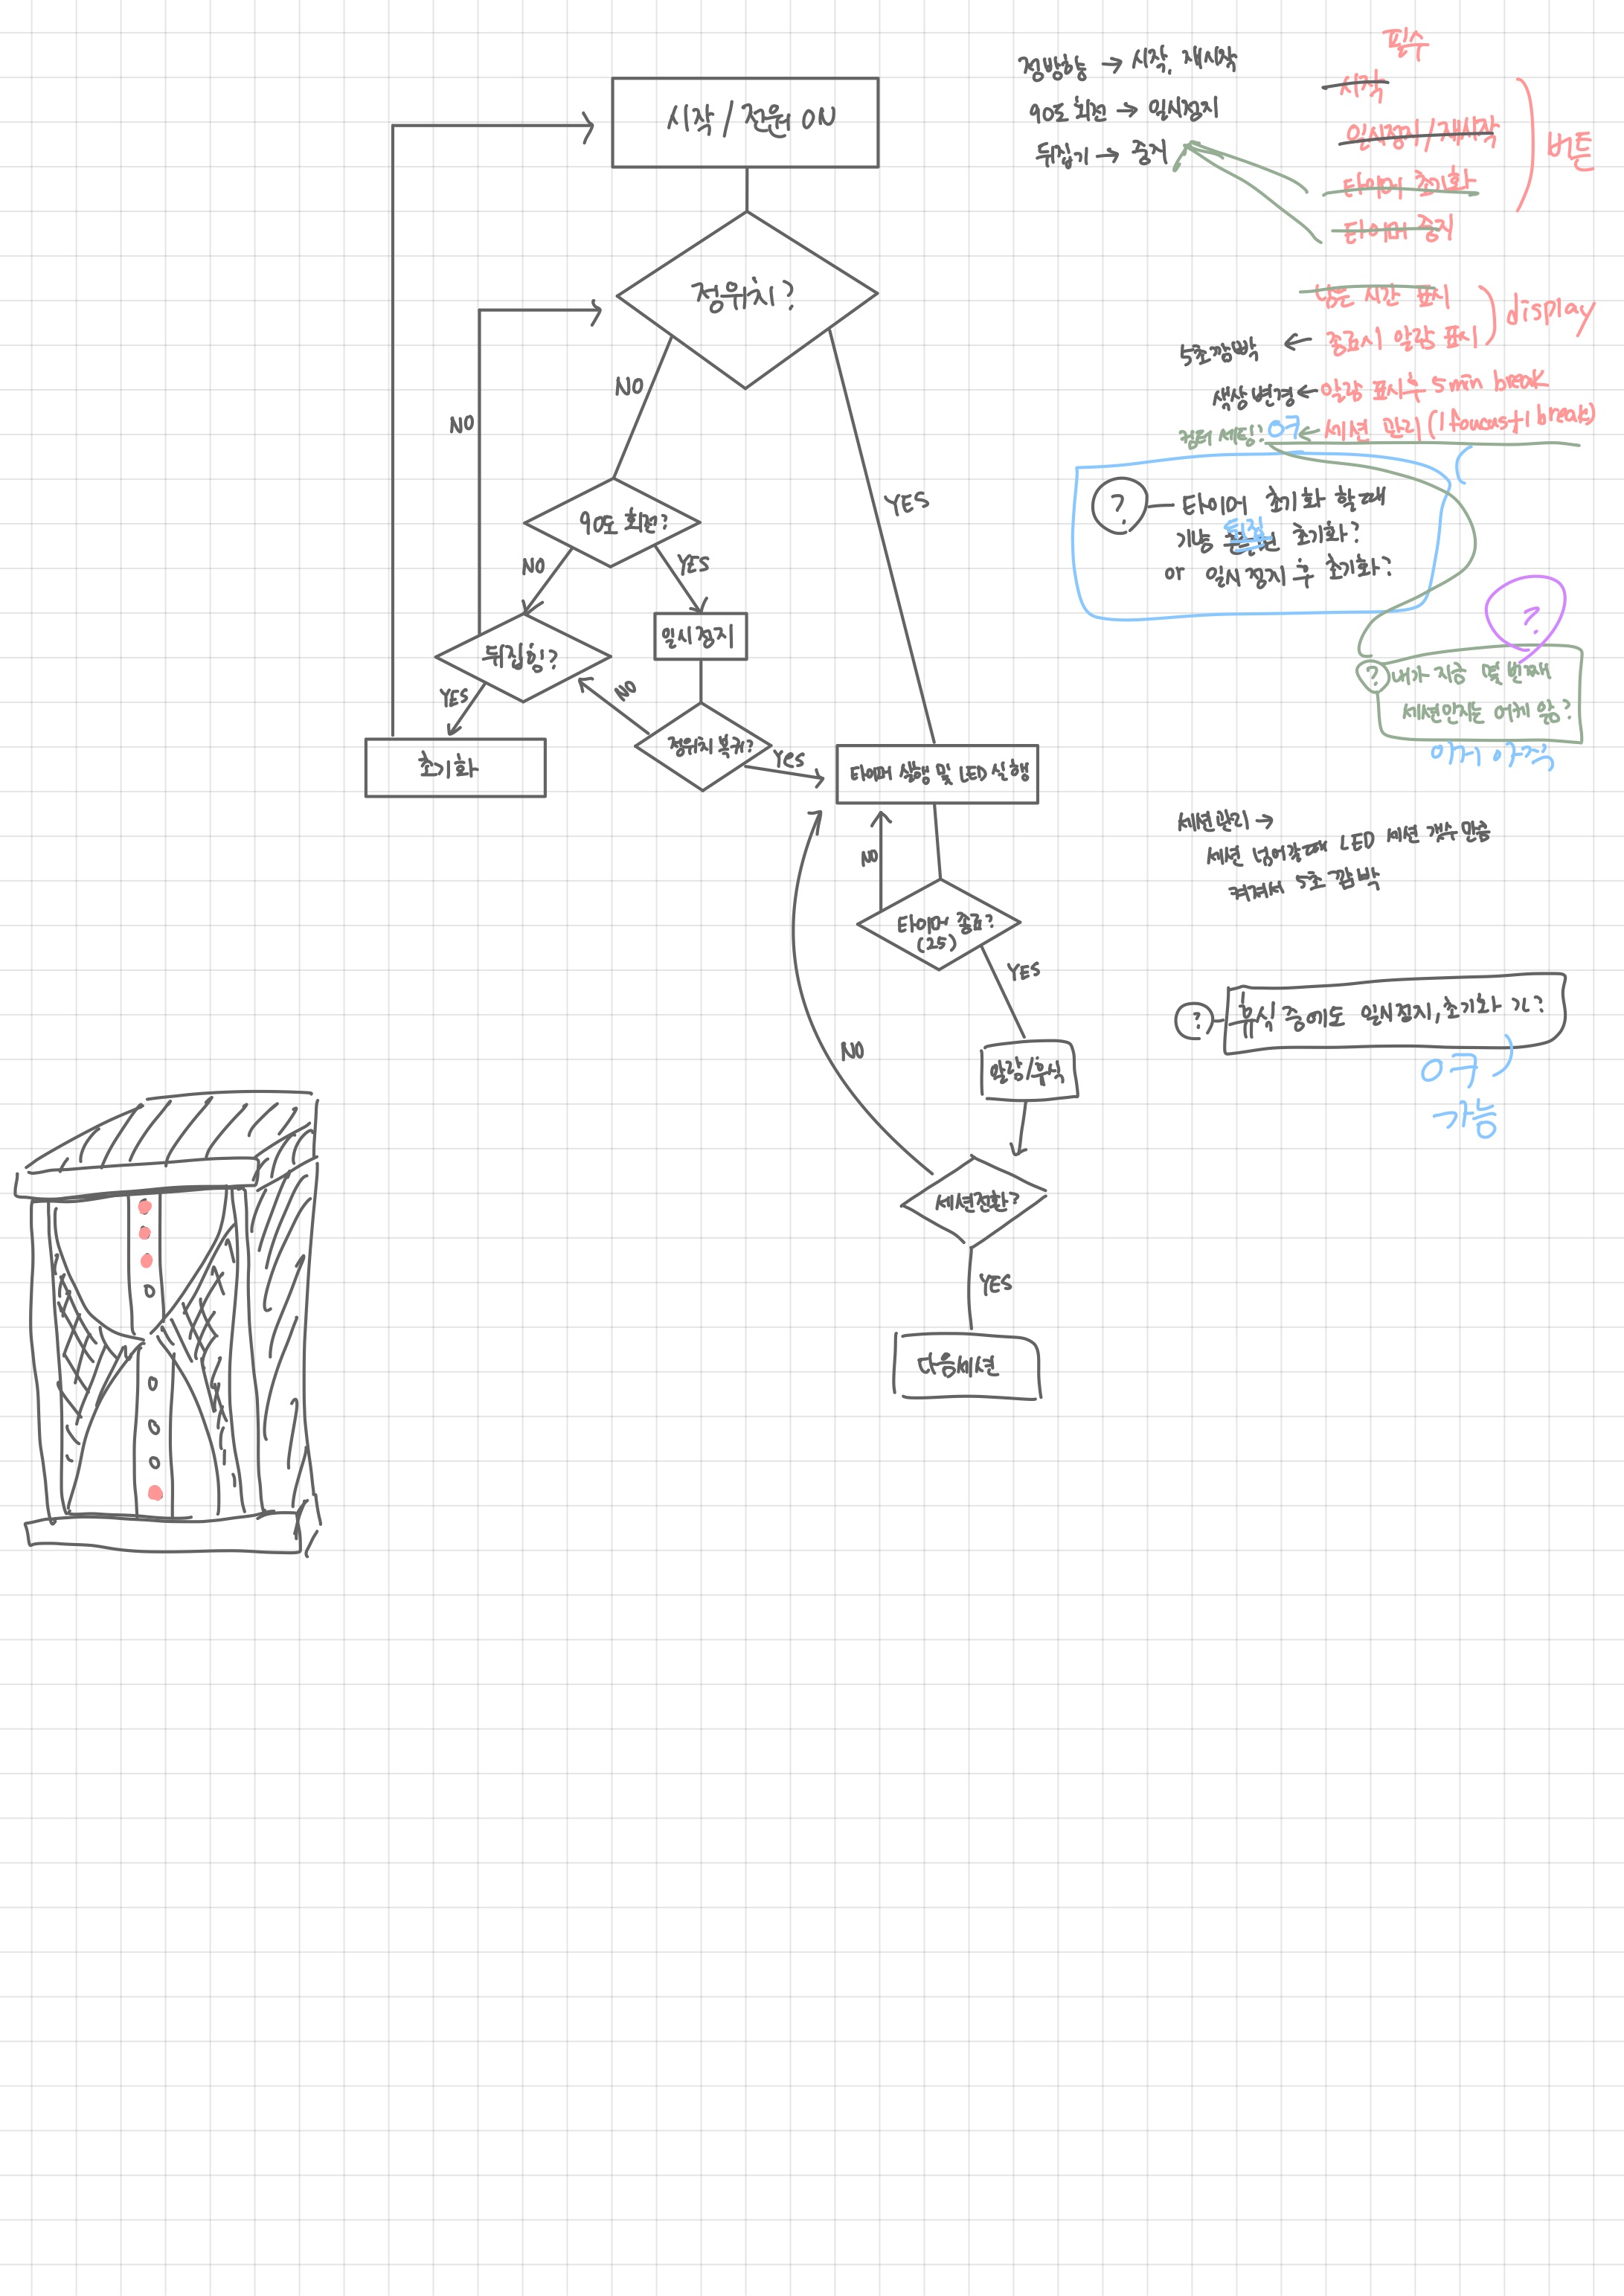 시작 / 전원 ON
정위치?
NO
YES
NO
90도 회전?
NO
YES
뒤집힘?
일시정지
YES
NO
정위치 복귀?
Yes
초기화
타이머 실행 및 LED 실행
NO
타이머 종료?
(25)
YES
알람/휴식
NO
세션전환?
YES
다음세션
정방향 → 시작, 재시작
90도 회전 → 일시정지
뒤집기 → 중지
필수
시작
일시정지/재시작
타이머 초기화
타이머 중지
버튼
남은 시간 표시
종료시 알람 표시
display
5초깜빡 ←
색상변경 ← 알람 표시후 5min break
컴터 세팅? ㅇㅋ ← 세션 관리 (1 foucus+1 break)
? 타이머 초기화 할때
기냥 뒤집 초기화?
or 일시정지 후 초기화?
?
? 내가 지금 몇 번째
세션인지는 어케 앎?
이거 아직
세션관리 →
세션 넘어갈때 LED 세션 갯수만큼
켜져서 5초 깜박
? 휴식 중에도 일시정지, 초기화 가?
ㅇㅋ
가능